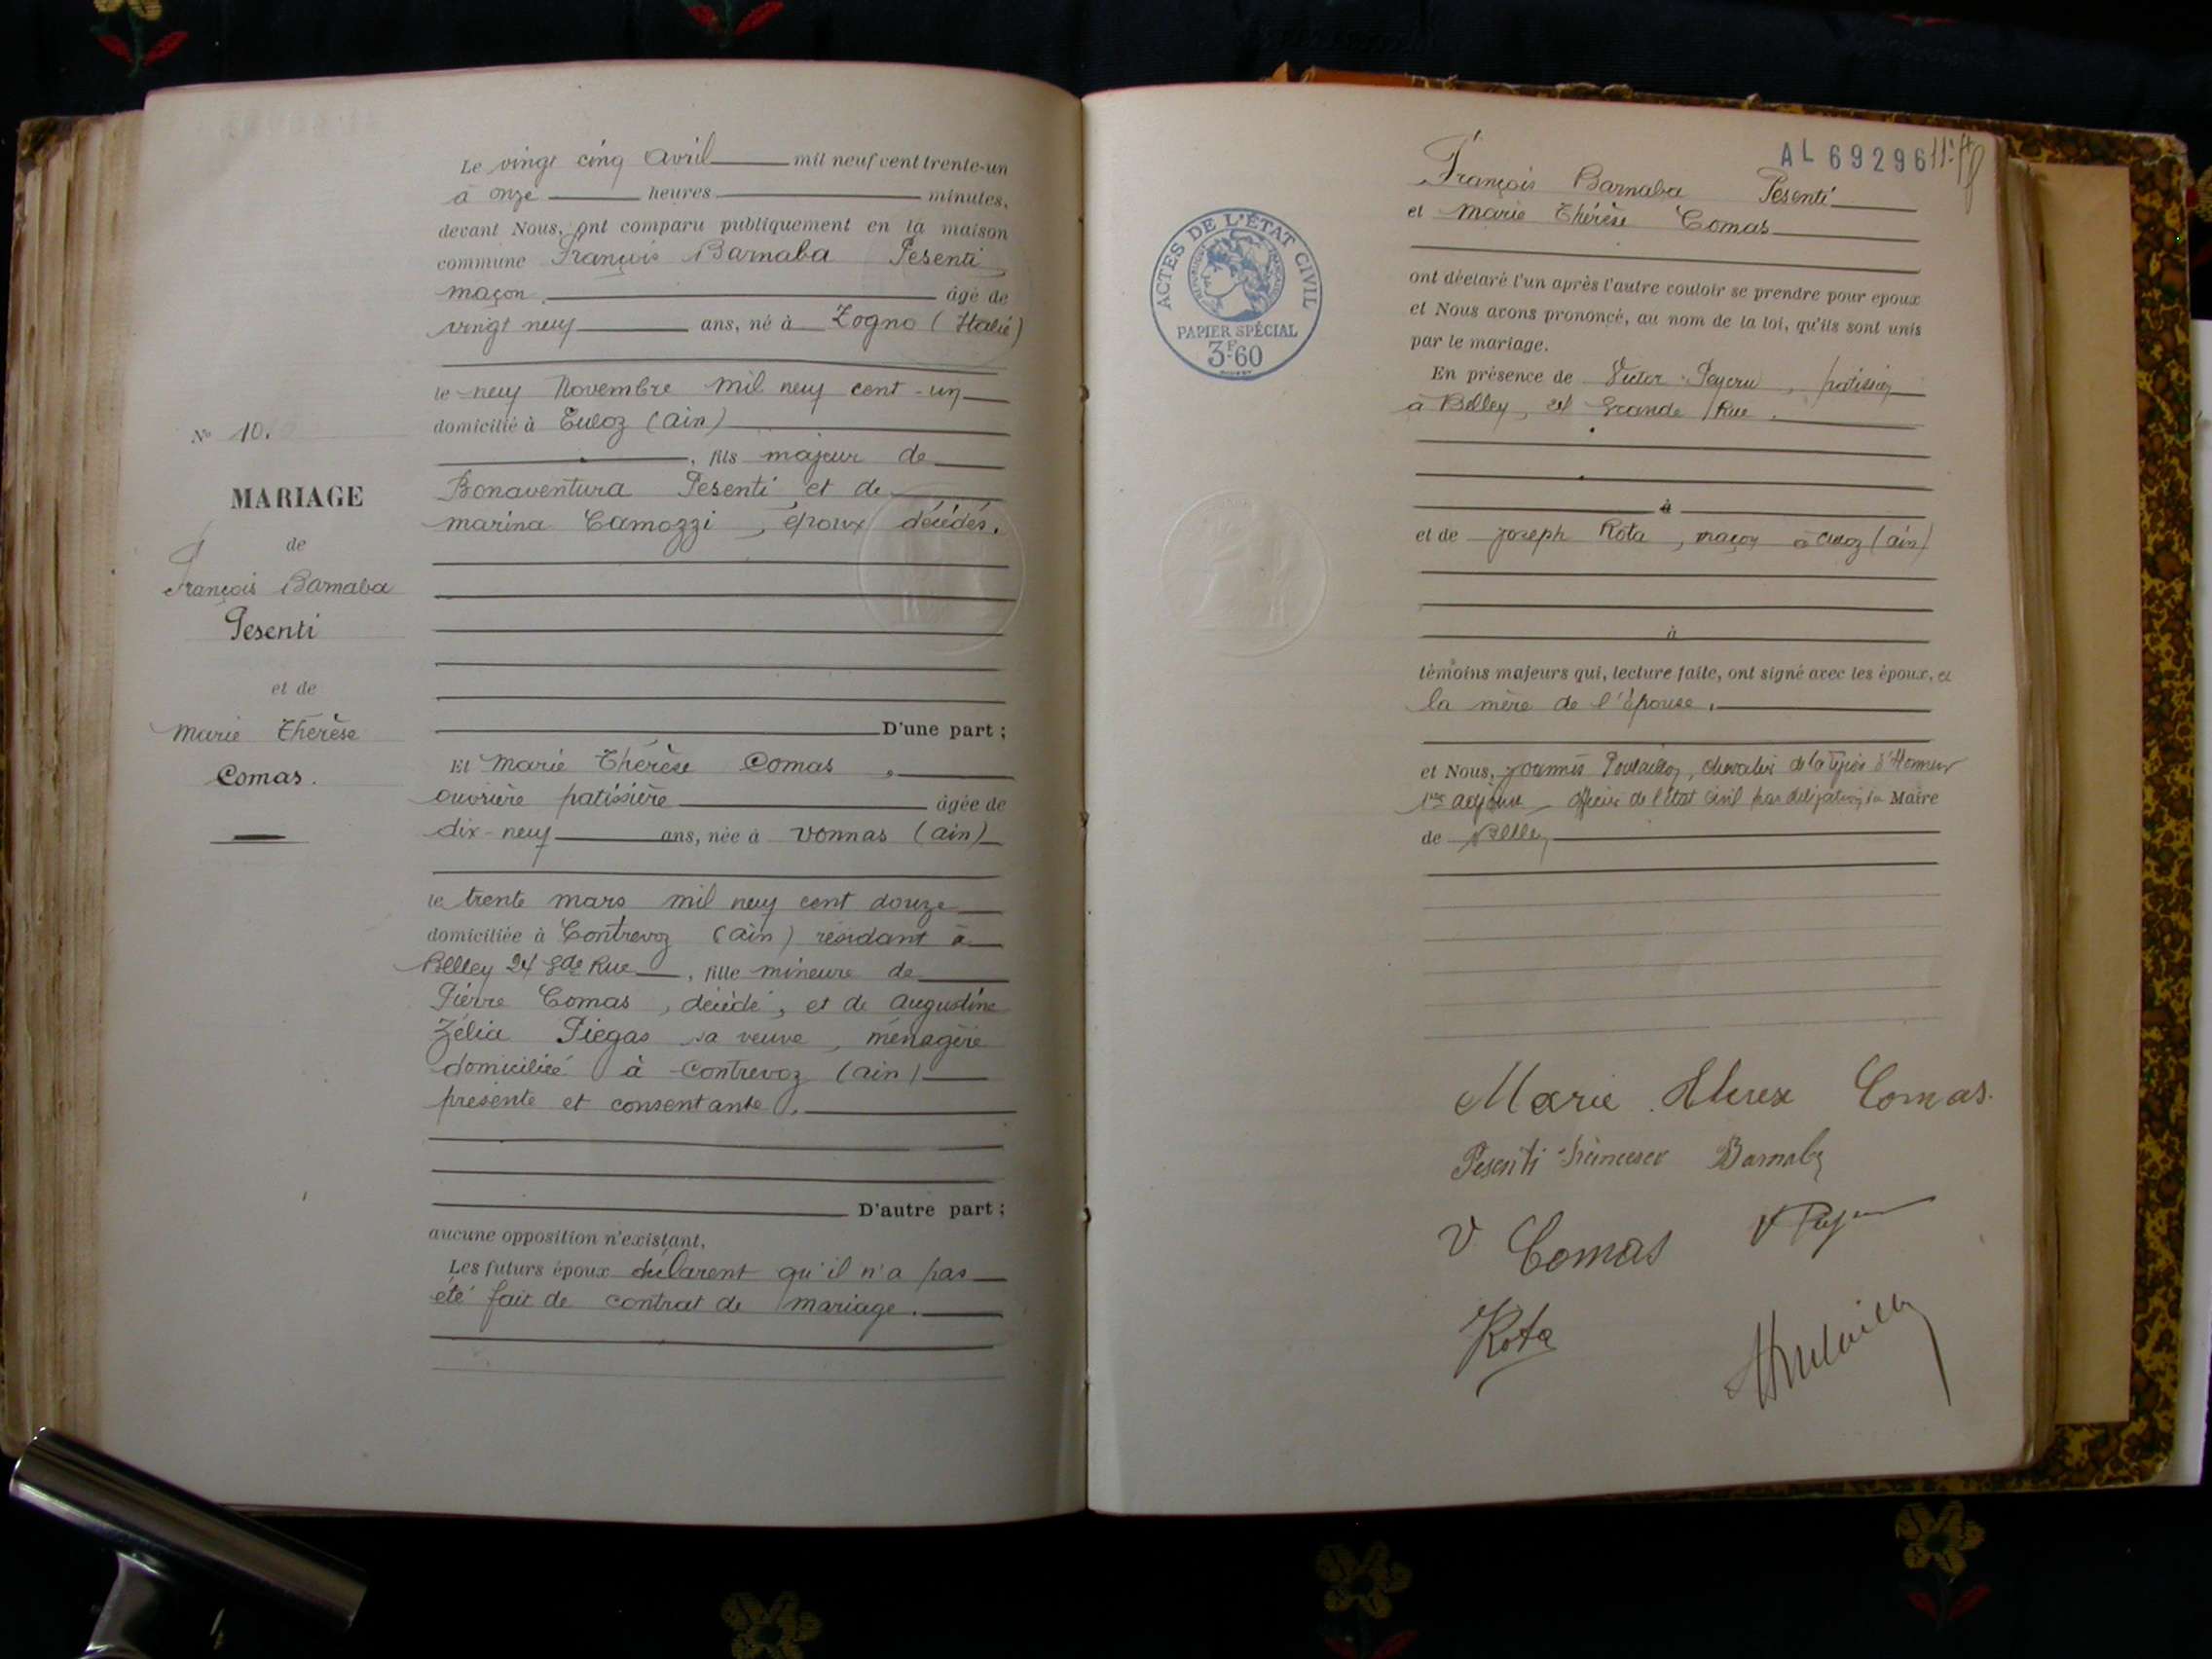 Le vingt cinq Avril mil neuf cent trente-un
à onze heures minutes,
devant Nous, ont comparu publiquement en la maison
commune François Barnaba Pesenti
maçon, âgé de
vingt neuf ans, né à Zogno (Italie)
le neuf Novembre mil neuf cent un
domicilié à Culoz (Ain)
, fils majeur de
Bonaventura Pesenti et de
Marina Camozzi, époux décédés.
D'une part ;
Et Marie Thérèse Comas,
ouvrière patissière âgée de
dix-neuf ans, née à Vonnas (Ain)
le trente mars mil neuf cent douze
domiciliée à Contrevoz (Ain) résidant à
Belley 24 gde Rue, fille mineure de
Pierre Comas, décédé, et de Augustine
Zélia Piegas sa veuve, ménagère
domiciliée à Contrevoz (Ain)
présente et consentante.
D'autre part ;
aucune opposition n'existant,
Les futurs époux déclarent qu'il n'a pas
été fait de contrat de mariage.
No 10.
MARIAGE
de
François Barnaba
Pesenti
et de
Marie Thérèse
Comas.
AL 69296
François Barnaba Pesenti
et Marie Thérèse Comas
ont déclaré l'un après l'autre vouloir se prendre pour époux
et Nous avons prononcé, au nom de la loi, qu'ils sont unis
par le mariage.
En présence de Victor Peyeru, patissier
à Belley, 24 Grande Rue.
à
et de Joseph Rota, maçon à Culoz (Ain)
à
témoins majeurs qui, lecture faite, ont signé avec les époux, et
la mère de l'épouse.
et Nous, Joannès, chevalier de la Légion d'Honneur
1er adjoint officier de l'état civil par délégation du Maire
de Belley
ACTES DE L'ÉTAT CIVIL
RÉPUBLIQUE FRANÇAISE
PAPIER SPÉCIAL
3F60
Marie Thérèse Comas.
Pesenti Francesco Barnaba
V Comas
Rota